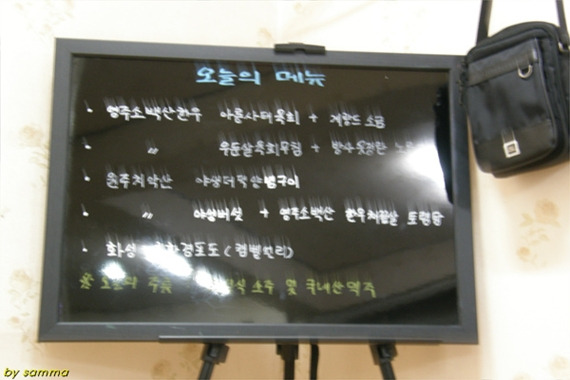 오늘의 메뉴
· 영주소백산한우 아롱사태육회 + 게랑드소금
· 〃 우둔살육회무침 + 방사유정란
· 원주치악산 야생더덕산뱀구이
· 〃 야생버섯 + 영주소백산 한우치맛살 토렴탕
· 화성 포도 (캠벨얼리)
※ 오늘의 주류 소주 및 국내산 맥주
by samma